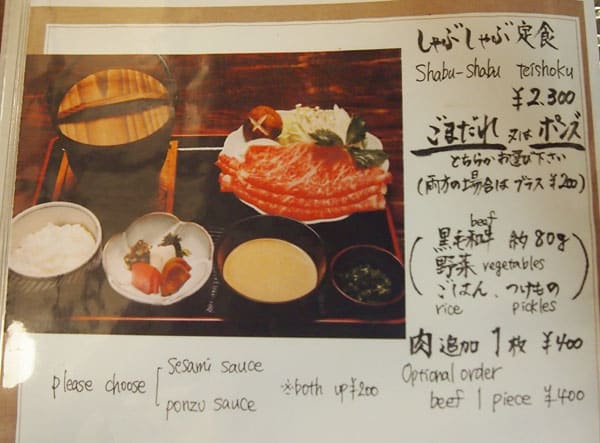 しゃぶしゃぶ定食
Shabu-shabu teishoku
¥2,300
ごまだれ 又は ポンズ
どちらかお選び下さい
(両方の場合は プラス ¥200)
beef
黒毛和牛 約80g
野菜 vegetables
ごはん、つけもの
rice pickles
肉 追加 1枚 ¥400
Optional order
beef 1 piece ¥400
please choose
sesami sauce
ponzu sauce
※both up ¥200